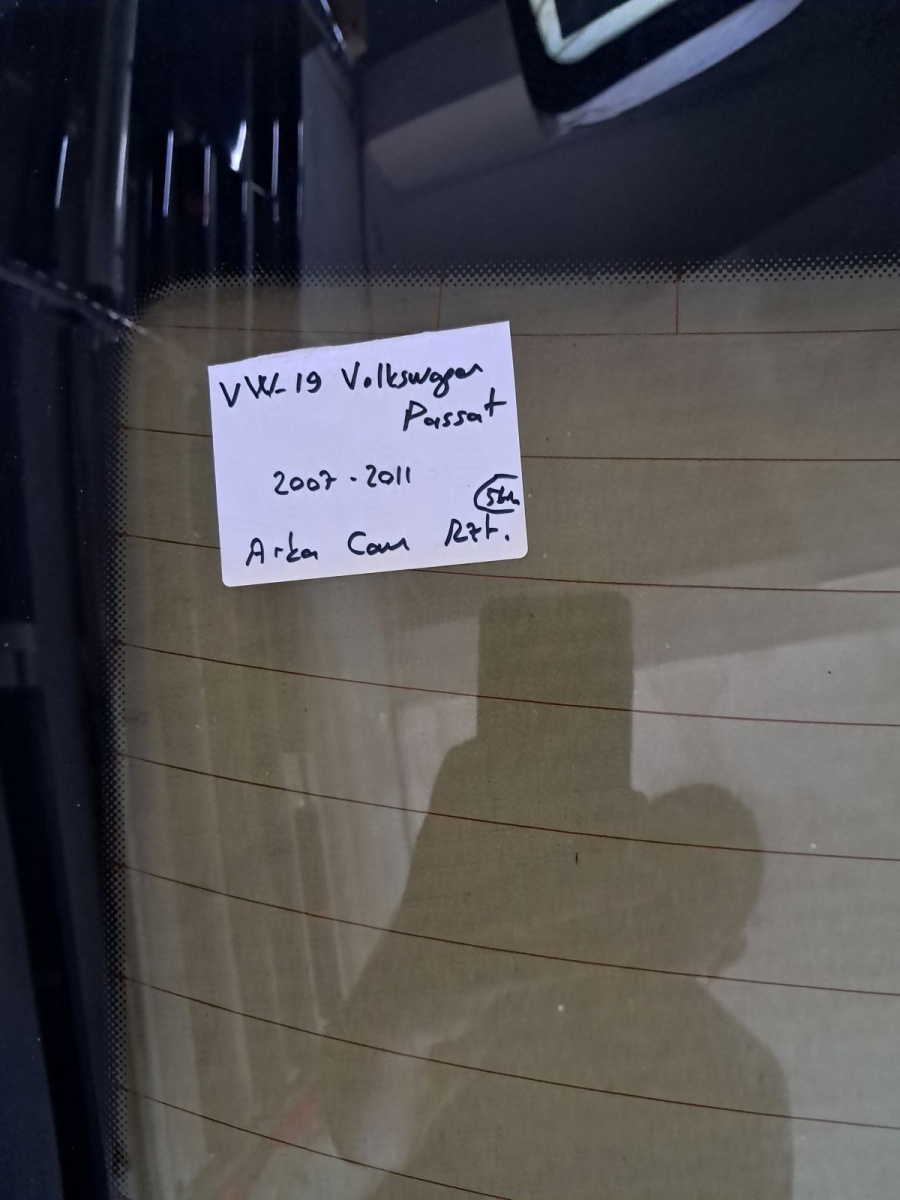 VW-19 Volkswagen
Passat
2007-2011
Arka Cam Rzt.